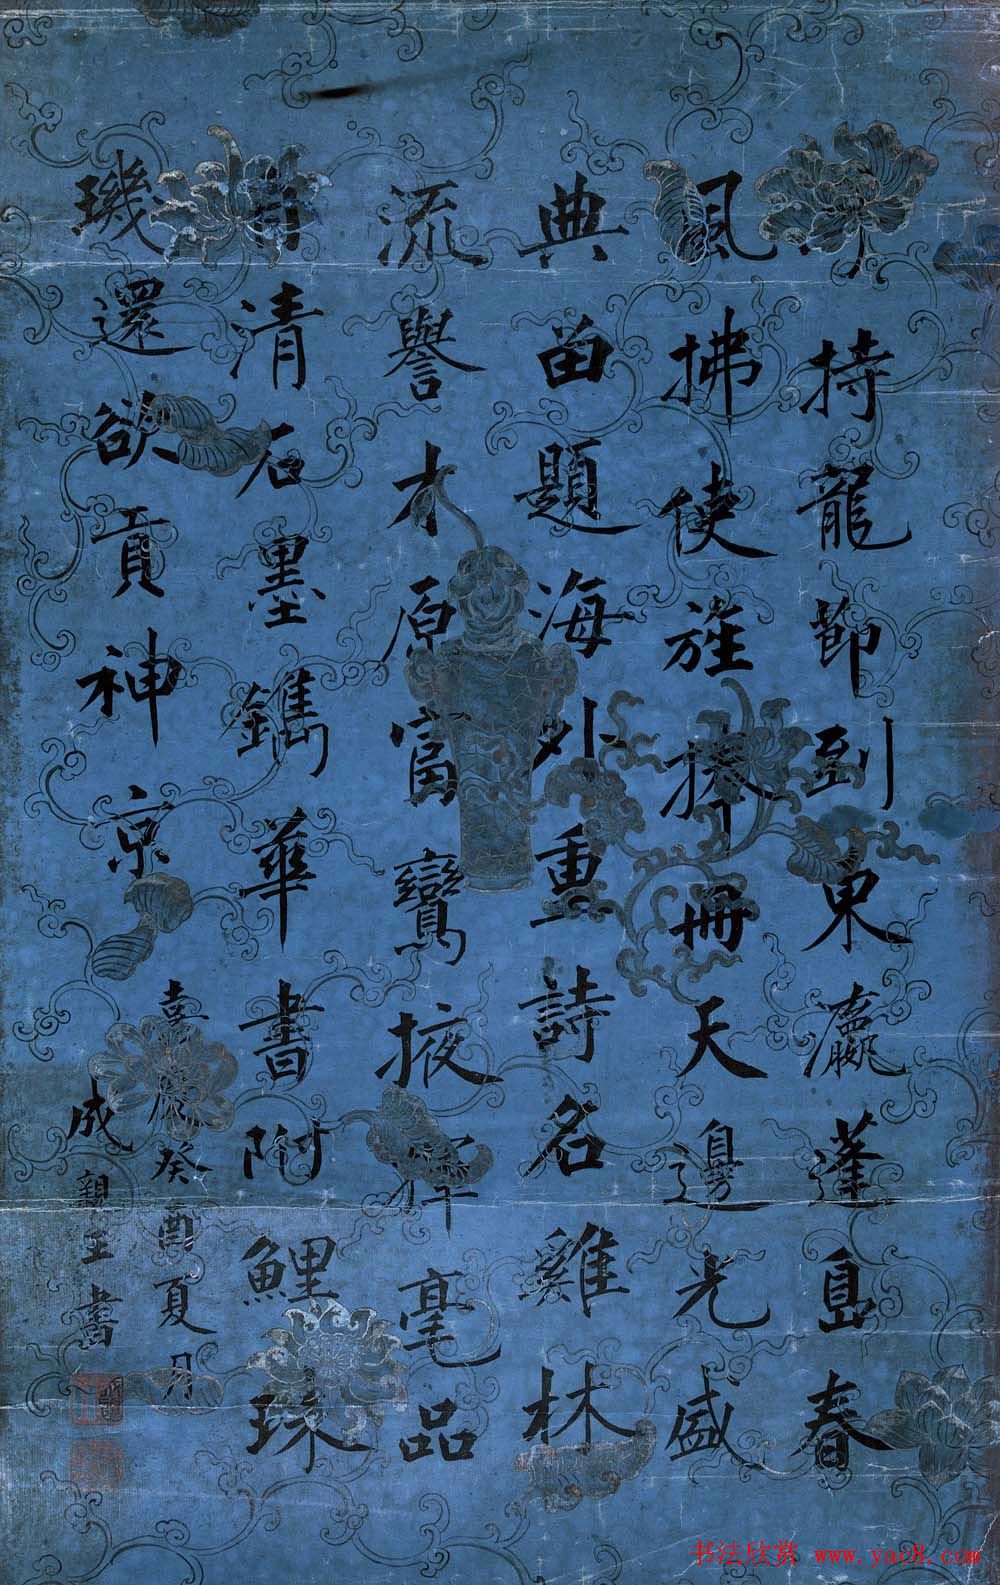 持龍節到東瀛蓬島春
風拂使旌捧冊天邊光盛
典留題海外重詩名雞林
流譽才原富鸞掖揮毫品
自清石墨鐫華書附鯉珠
璣還欲貢神京
嘉慶癸酉夏月
成親王書
书法欣赏 www.yac8.com